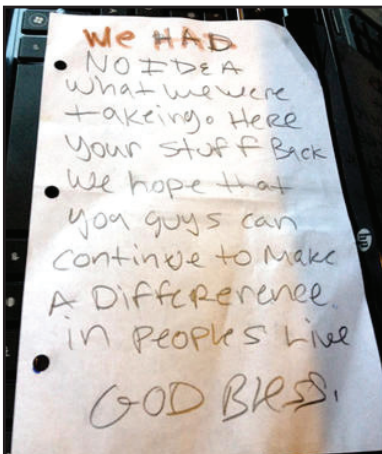 We HAD
NO IDEA
what we were
takeing. Here
your stuff Back
We hope that
you guys can
continue to Make
A Differenence.
in peoples Live
GOD Bless.
hp